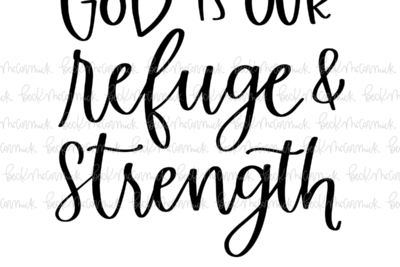 GOD IS OUR
refuge &
strength